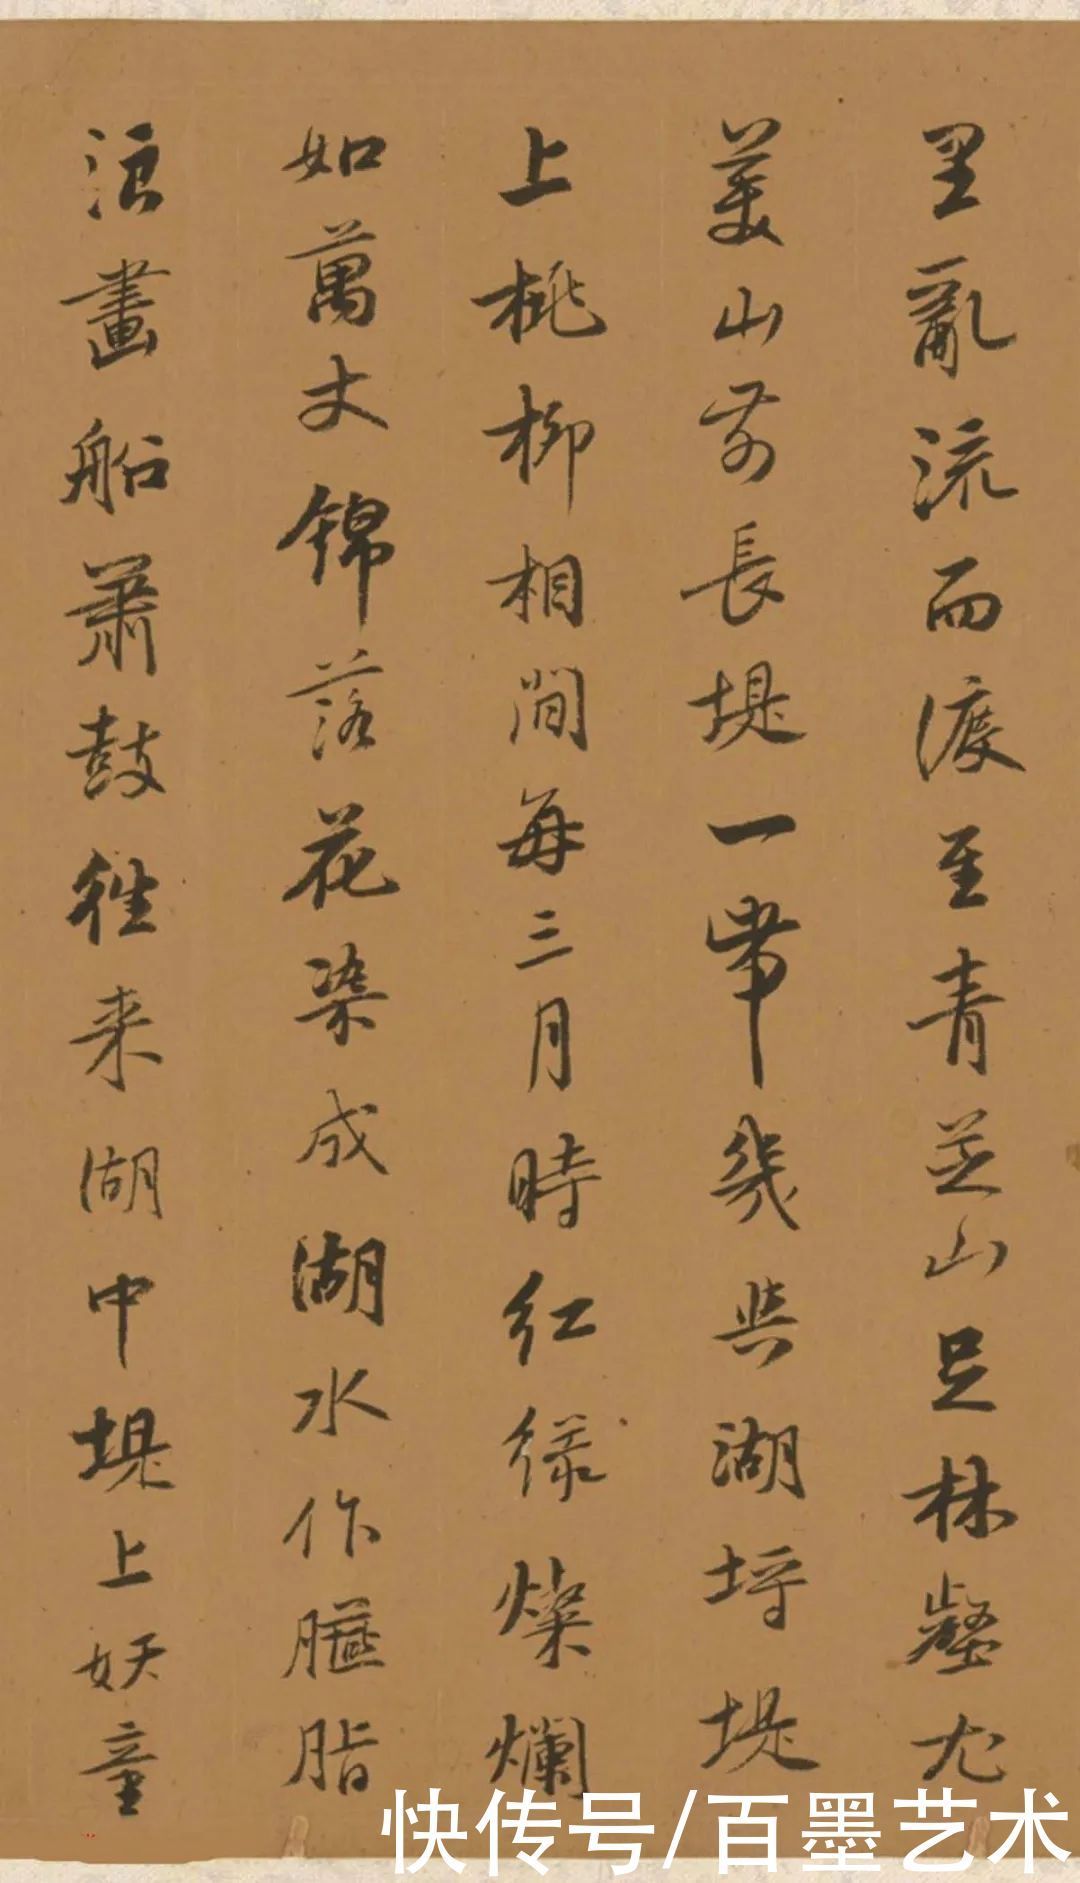 里亂流而渡至青芝山足林壑尤
美山前長堤一帶幾與湖埒堤
上桃柳相間每三月時紅緑燦爛
如萬丈錦落花染成湖水作臙脂
浪畫船簫鼓往来湖中堤上妖童
快传号/百墨艺术